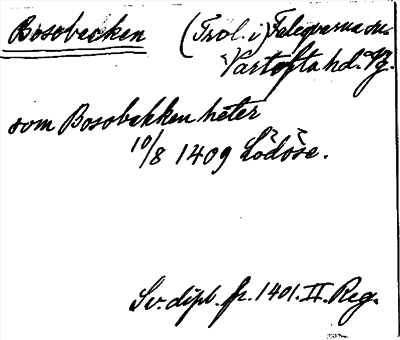 Bosobecken (Trol. i) Faleqvarna sn.
Vartofta hd. Vg.
som Bosobekken heter
10/8 1409 Lödöse.
Sv. dipl. fr. 1401. II. Reg.